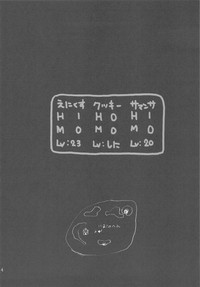 えにくす クッキー サマンサ
H I H O H I
M O M O M O
Lv:23 Lv:しに Lv:20